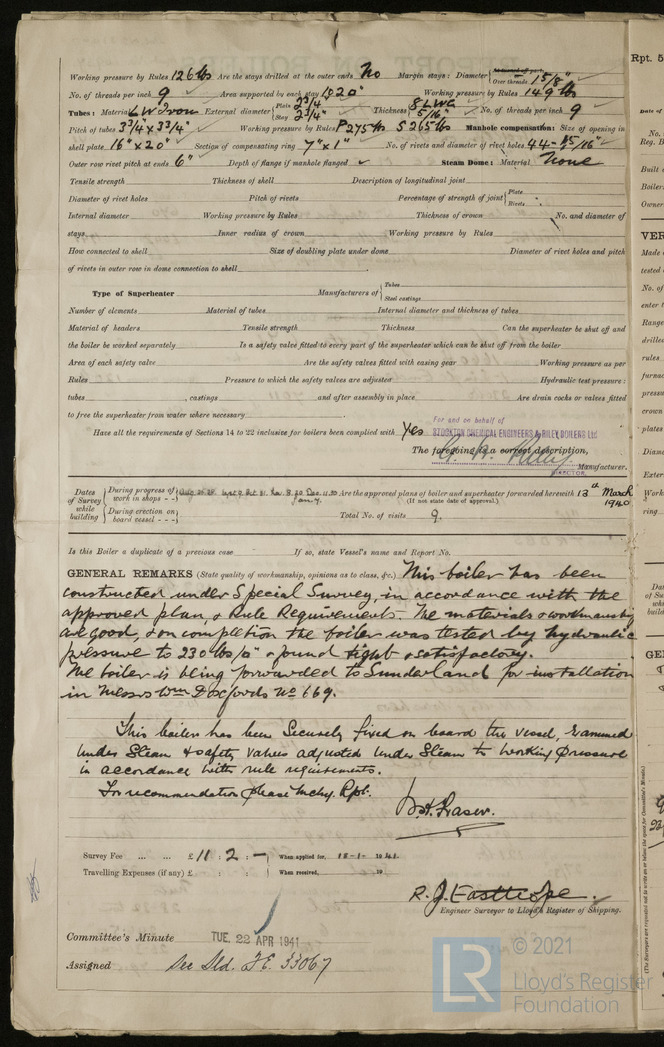 Working pressure by Rules 126 lbs Are the stays drilled at the outer ends No Margin stays: Diameter { At turned off part, Over threads 1 5/8"
No. of threads per inch 9 Area supported by each stay Working pressure by Rules 149 lbs
Tubes: Material L W Iron External diameter { Plain 3 1/4" Stay 3 1/4" Thickness { 8 LWG 5/16" No. of threads per inch 9
Pitch of tubes 3 3/4" x 3 3/4" Working pressure by Rules P 275 lbs S 265 lbs Manhole compensation: Size of opening in
shell plate 16" x 20" Section of compensating ring 7" x 1" No. of rivets and diameter of rivet holes 44 - 15/16"
Outer row rivet pitch at ends 6" Depth of flange if manhole flanged Steam Dome: Material None
Tensile strength Thickness of shell Description of longitudinal joint
Diameter of rivet holes Pitch of rivets Percentage of strength of joint { Plate Rivets
Internal diameter Working pressure by Rules Thickness of crown No. and diameter of
stays Inner radius of crown Working pressure by Rules
How connected to shell Size of doubling plate under dome Diameter of rivet holes and pitch
of rivets in outer row in dome connection to shell
Type of Superheater Manufacturers of { Tubes Steel castings
Number of elements Material of tubes Internal diameter and thickness of tubes
Material of headers Tensile strength Thickness Can the superheater be shut off and
the boiler be worked separately Is a safety valve fitted to every part of the superheater which can be shut off from the boiler
Area of each safety valve Are the safety valves fitted with easing gear Working pressure as per
Rules Pressure to which the safety valves are adjusted Hydraulic test pressure:
tubes , castings and after assembly in place Are drain cocks or valves fitted
to free the superheater from water where necessary
Have all the requirements of Sections 14 to 22 inclusive for boilers been complied with Yes
For and on behalf of
STOCKTON CHEMICAL ENGINEERS & RILEY BOILERS Ltd
The foregoing is a correct description,
Manufacturer.
DIRECTOR.
Dates of Survey while building { During progress of work in shops - - Are the approved plans of boiler and superheater forwarded herewith 13th March 1940
(If not state date of approval.)
During erection on board vessel - - - Total No. of visits 9.
Is this Boiler a duplicate of a previous case If so, state Vessel's name and Report No.
GENERAL REMARKS (State quality of workmanship, opinions as to class, &c.) This boiler has been
constructed under Special Survey, in accordance with the
approved plan, & Rule Requirements. The materials & workmanship
are good, & on completion the boiler was tested by hydraulic
pressure to 230 lbs/□" & found tight & satisfactory.
The boiler is being forwarded to Sunderland for installation
in Messrs Wm Doxfords No 669.
This boiler has been Securely fixed on board the vessel, Examined
Under Steam & safety valves adjusted under Steam to working pressure
in accordance with rule requirements.
For recommendation please see Mchy. Rpt.
Fraser.
Survey Fee ... ... £ 11 : 2 : - When applied for, 19 41.
Travelling Expenses (if any) £ : : When received, 19
R. J. Easthope.
Engineer Surveyor to Lloyd's Register of Shipping.
Committee's Minute TUE. 22 APR 1941
Assigned See Sld. F.E. 33067
© 2021
Lloyd's Register
Foundation
LR
Rpt. 5